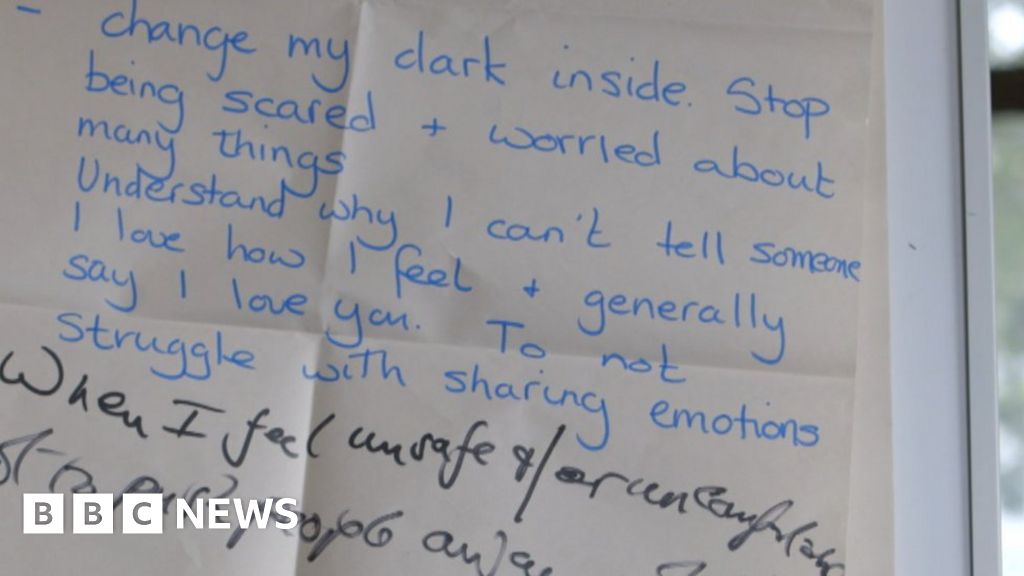 - change my dark inside. Stop
being scared + worried about
many things
Understand why I can't tell someone
I love how I feel + generally
say I love you. To not
struggle with sharing emotions
When I feel unsafe &/or uncomfortable
people away
BBC NEWS